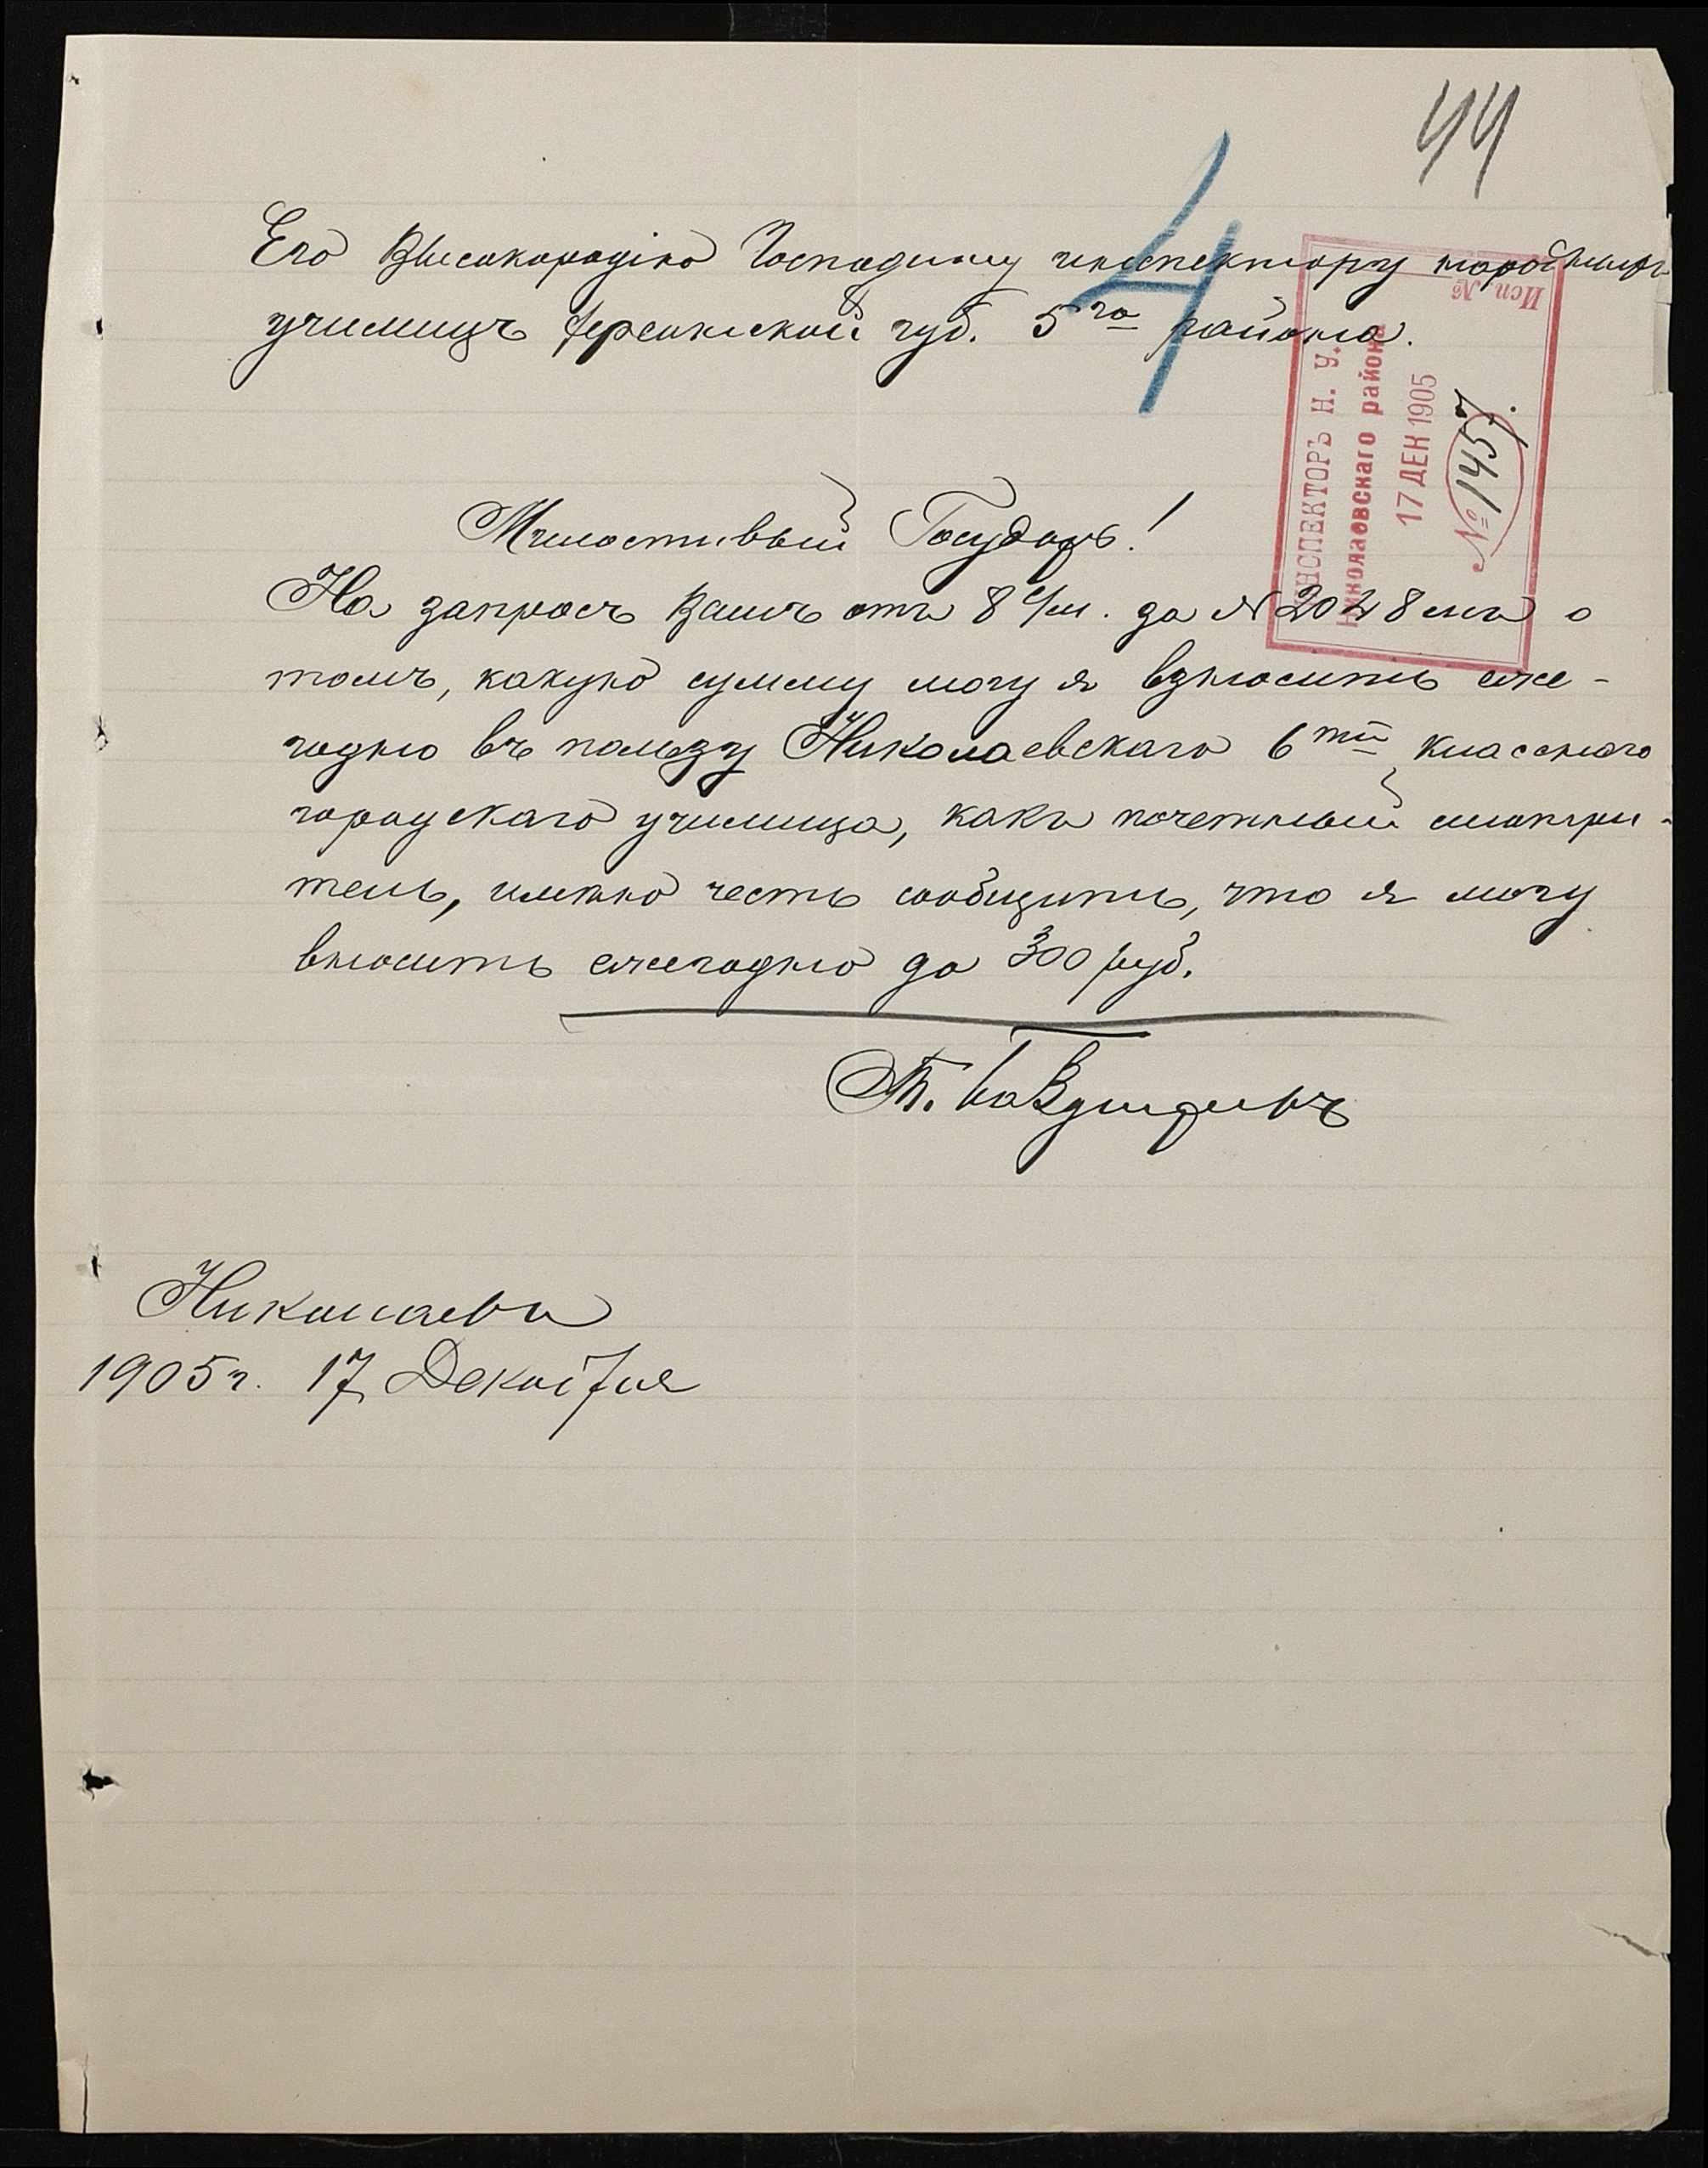 44
4
Его Высокородію Господину инспектору народныхъ
училищъ Херсонской губ. 5го района.
Исп. №
ИНСПЕКТОРЪ Н. У.
Николаевскаго района
17 ДЕК 1905
№ 1457
Милостивый Государь!
На запросъ Вашъ отъ 8 с/м. за № 2048 мъ о
томъ, какую сумму могу я взносить еже-
годно въ пользу Николаевскаго 6ти классного
городскаго училища, какъ почетный смотри-
тель, имѣю честь сообщить, что я могу
вносить ежегодно до 300 руб.
Николаевъ
1905 г. 17 Декабря